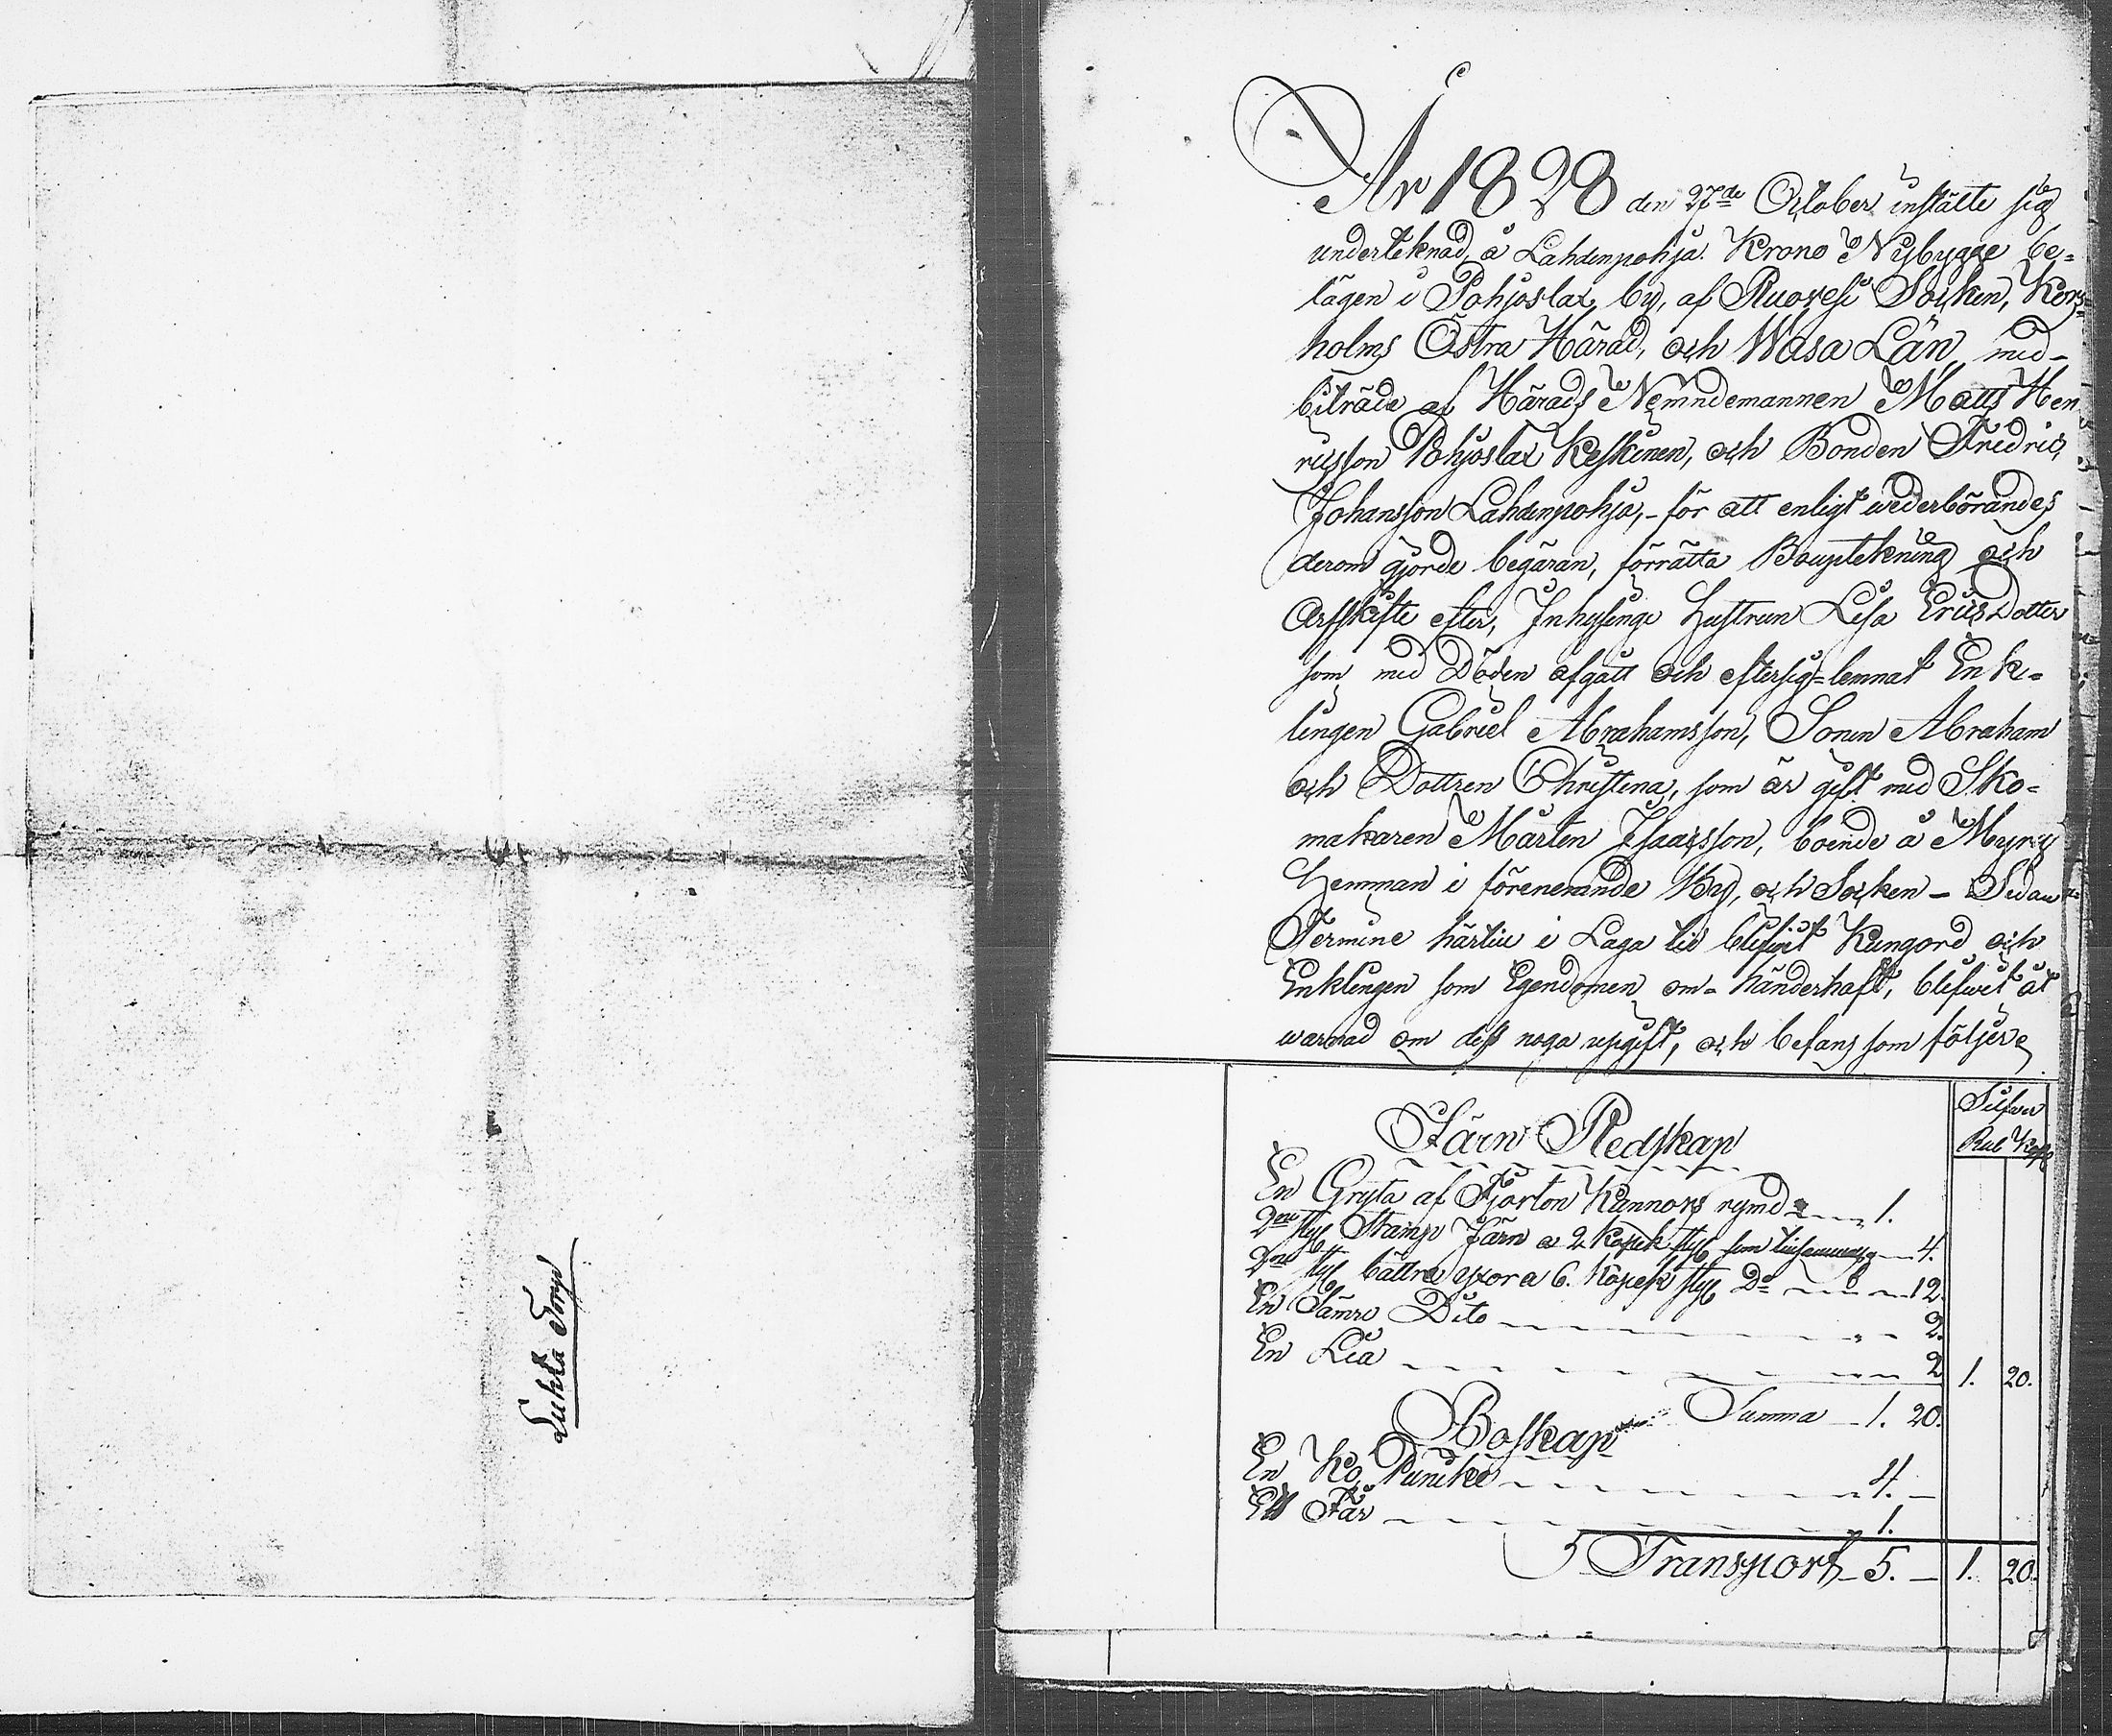 Luhta Torp
År 1828 den 27de October instälte sig
underteknad, å Lahdenpohja Krono Nybygge be-
lägen i Pohjoslax by, af Ruovesi Socken, Kors-
holms Östra Härad, och Wasa Län, med-
biträde af Härads Nemndemannen Matts Hen
ricsson Pohjoslax Keskinen, och Bonden Fredric
Johansson Lahdenpohja, - för att enligt wederbörandes
derom gjorde begäran, förrätta Boupteckning och
Arfskifte efter, Inhysinge Hustrun Lisa Ericsdotter
som med Döden afgått och eftersig-lemnat Enk-
lingen Gabriel Abrahamsson, Sonen Abraham
och Dottren Christina, som är gift med Sko-
makaren Mårten Isacsson, boende å Myry
Hemman i förenemnde By, och Socken - Sedan
Termine härtill i Laga tid blifwit Kungord och
Enklingen som Egendomen om-händerhaft, blifwit åt
warnad om dess noga upgift, och befans som följer
Silfver
Rub Kop
Järn Redskap
En Gryta af Fjorton Kannors rymd 1.
2ne st Stamp Järn a 2 Kopek st 4.
2ne st bättre yxor a 6. Kopek st Do 12.
En Sämre Dito 2.
En Lia 2 1. 20.
Summa 1. 20.
Boskap
En Ko, Puniko 4. -
Ett Får 1.
Transport 5. - 1. 20.